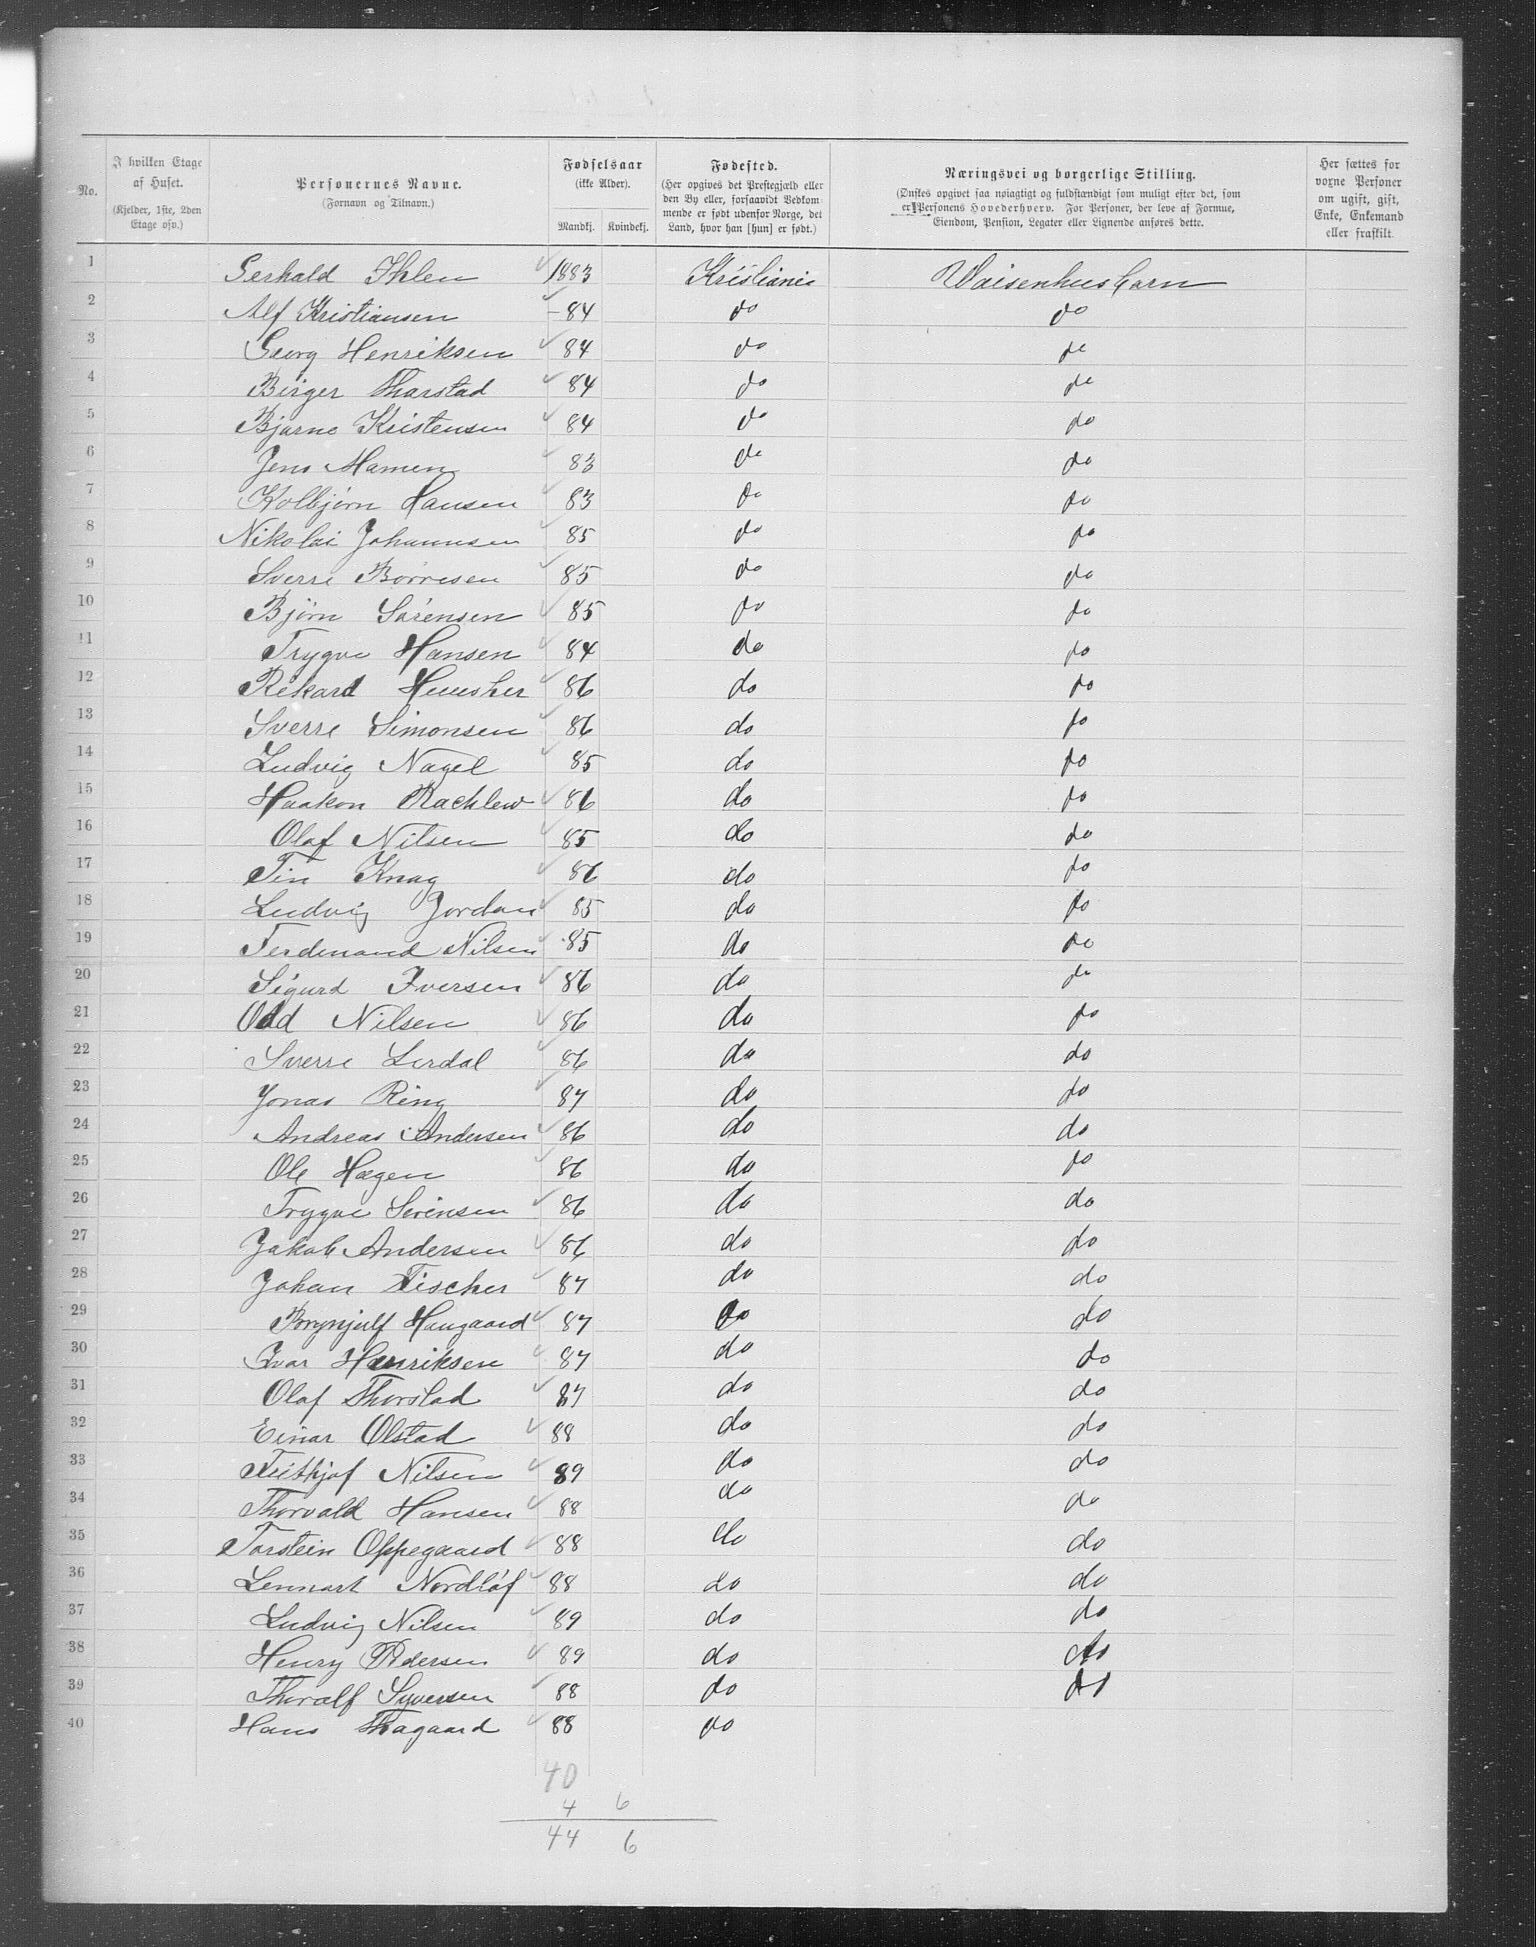 No.
I hvilken Etage af Huset.
(Kjelder, 1ste, 2den Etage osv.)
Personernes Navne.
(Fornavn og Tilnavn.)
Fødselsaar
(ikke Alder).
Mandkj. Kvindekj.
Fødested.
(Her opgives det Prestegjæld eller
den By eller, forsaavidt Vedkom-
mende er født udenfor Norge, det
Land, hvor han [hun] er født.)
Næringsvei og borgerlige Stilling.
(Ønskes opgivet saa nøiagtigt og fuldstændigt som muligt efter det, som
er Personens Hovederhverv. For Personer, der leve af Formue,
Eiendom, Pension, Legater eller Lignende anføres dette.
Her sættes for
vorne Personer
om ugift, gift,
Enke, Enkemand
eller fraskilt.
1 Ihlen 1883 Kristiania Waisenhusbarn
2 Alf Kristiansen - 84 do do
3 Georg Henriksen 84 do do
4 Birger Tharstad 84 do do
5 Bjarne Kristensen 84 do do
6 Jens Mamen 83 do do
7 Kolbjørn Hansen 83 do do
8 Nikolai Johannsen 85 do do
9 Sverre Børresen 85 do do
10 Bjørn Sørensen 85 do do
11 Trygve Hansen 84 do do
12 Rikard 86 do do
13 Sverre Simonsen 86 do do
14 Ludvig Nagel 85 do do
15 Haakon Rachlew 86 do do
16 Olaf Nilsen 85 do do
17 Knag 86 do do
18 Ludvig Jordan 85 do do
19 Ferdinand Nilsen 85 do do
20 Sigurd Iversen 86 do do
21 Odd Nilsen 86 do do
22 Sverre Lerdal 86 do do
23 Jonas Ring 87 do do
24 Andreas Andersen 86 do do
25 Ole Hagen 86 do do
26 Trygve Sørensen 86 do do
27 Jakob Andersen 86 do do
28 Johan Fischer 87 do do
29 Brynjulf Haugaard 87 do do
30 Ivar Henriksen 87 do do
31 Olaf Thorstad 87 do do
32 Einar Olstad 88 do do
33 Nilsen 89 do do
34 Thorvald Hansen 88 do do
35 Torstein Oppegaard 88 do do
36 Lennart Nordløf 88 do do
37 Ludvig Nilsen 89 do do
38 Henry Pedersen 89 do do
39 Thoralf Syversen 88 do do
40 Hans 88 do
40
4 6
44 6